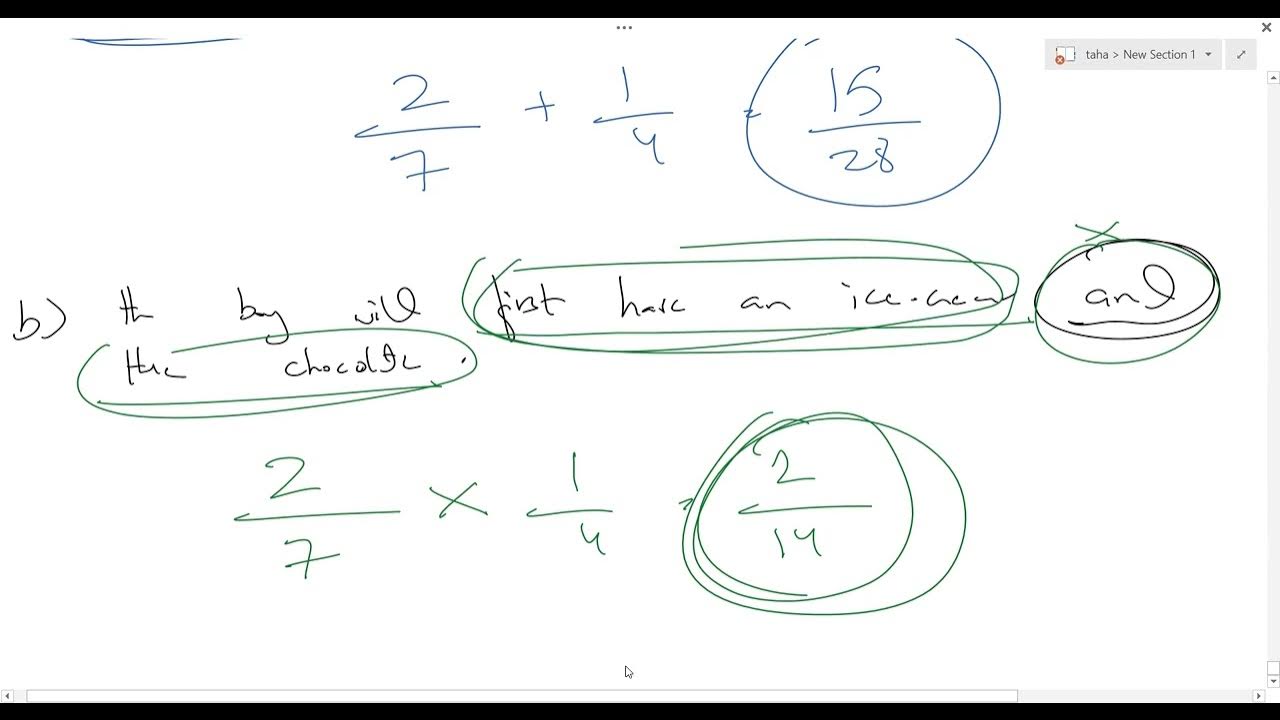 taha > New Section 1
2/7 + 1/4 = 15/28
b) th boy will first have an ice-cream and
the chocolate.
2/7 × 1/4 = 2/14